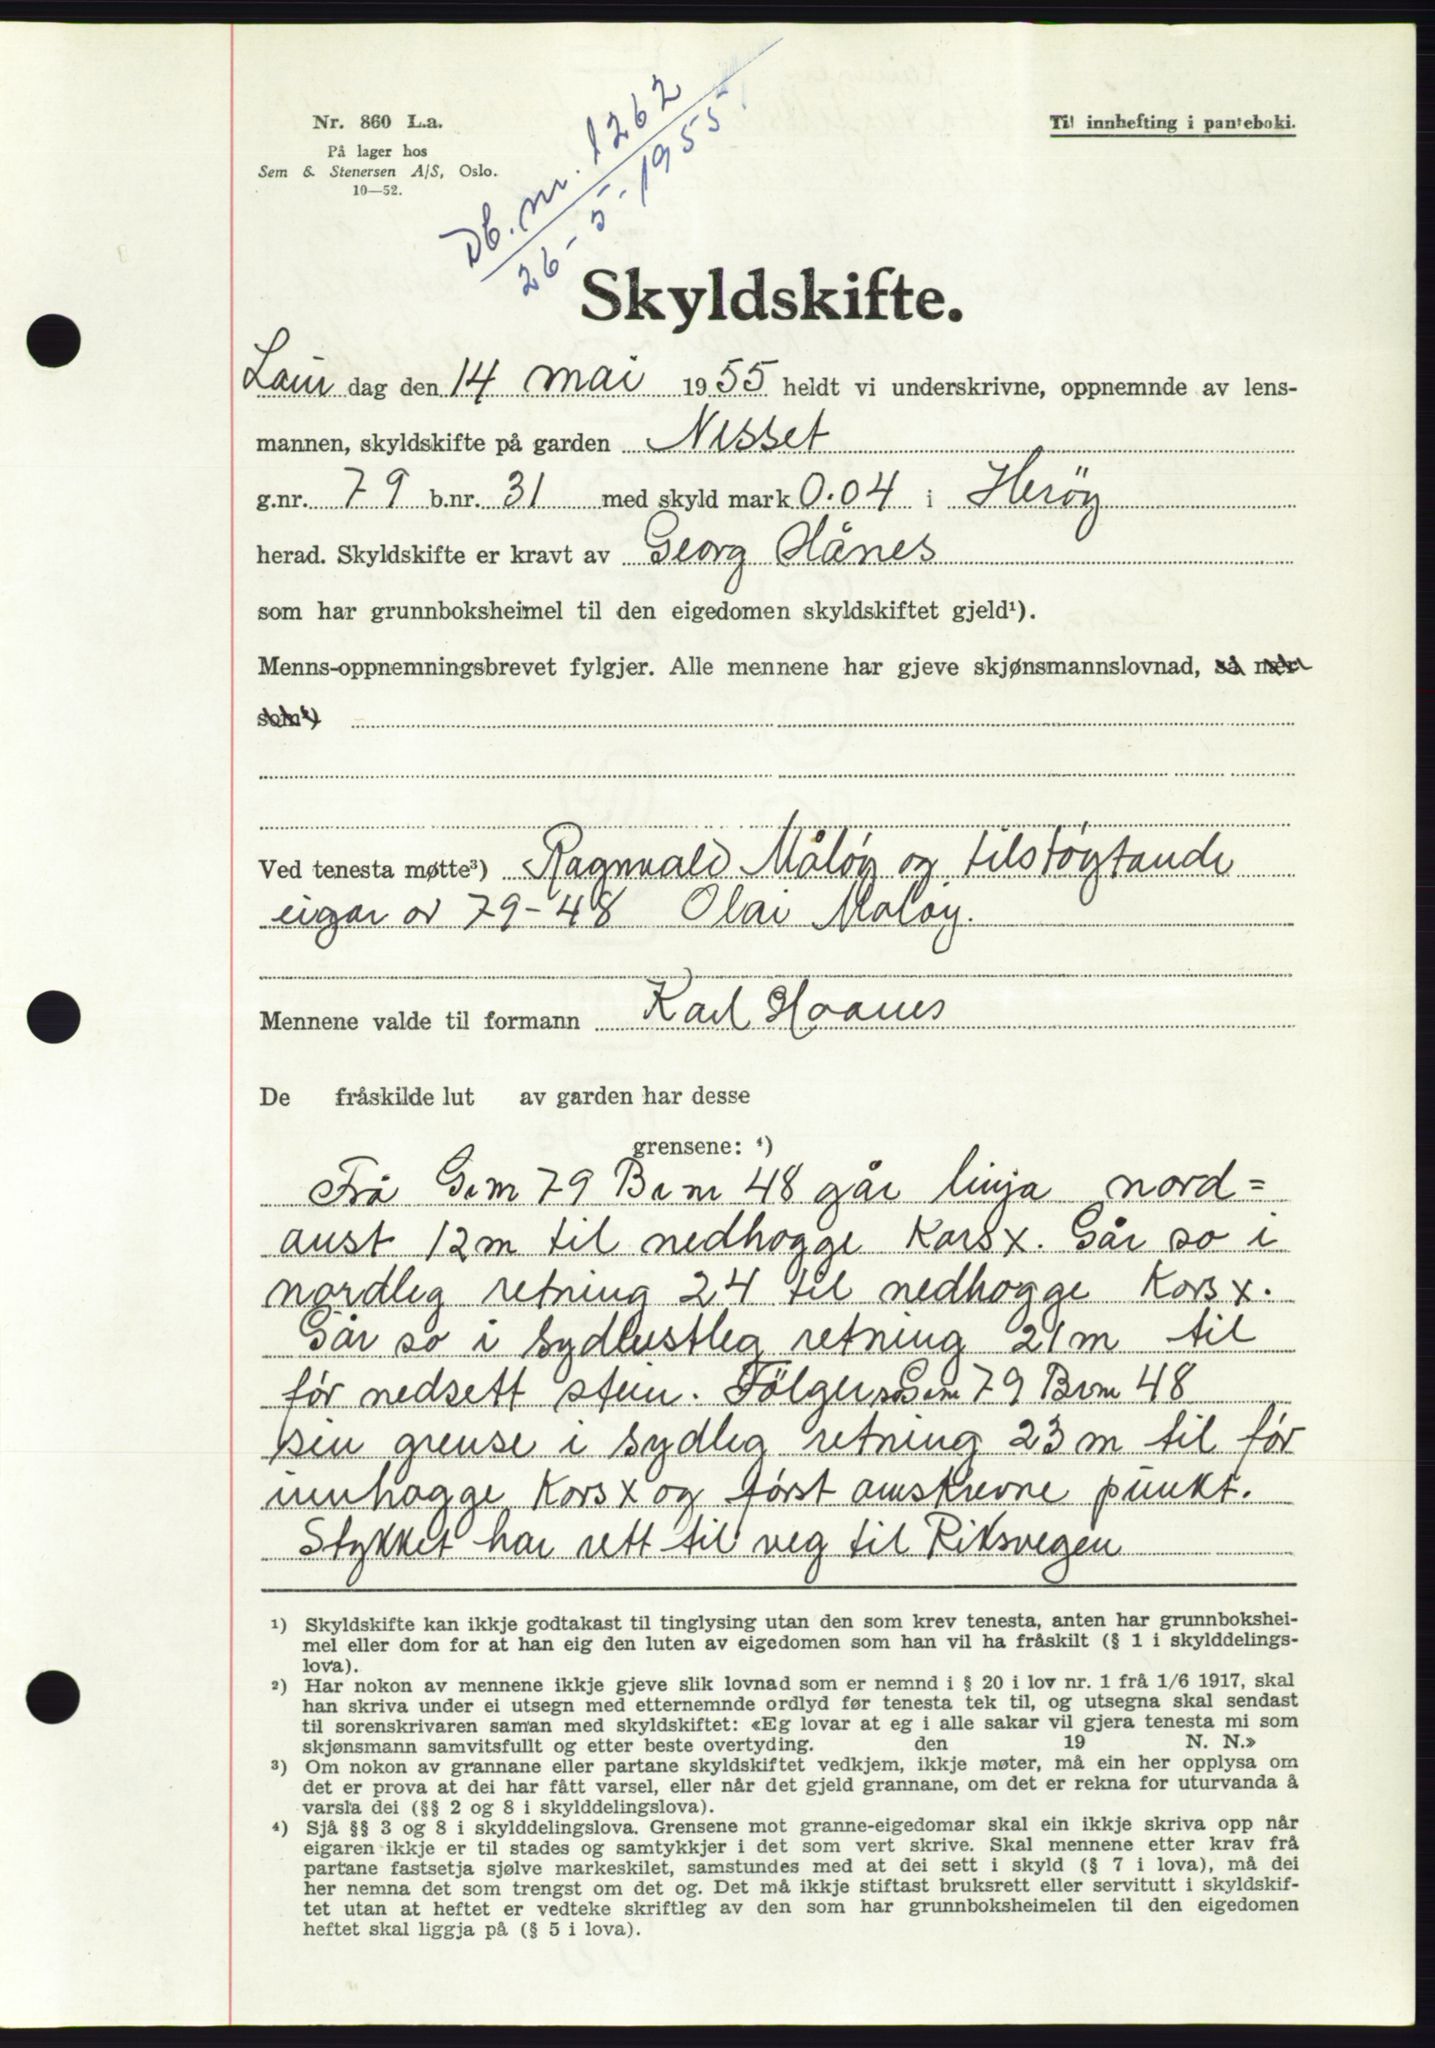 Nr. 860 L.a.
På lager hos
Sem & Stenersen A/S, Oslo.
10—52.
Til innhefting i panteboki.
Db. nr. 1262
26-5-1955
Skyldskifte.
Laur dag den 14 mai 1955 heldt vi underskrivne, oppnemnde av lens-
mannen, skyldskifte på garden Nesset
g.nr. 79 b.nr. 31 med skyld mark 0.04 i Herøy
herad. Skyldskifte er kravt av Georg Hånes
som har grunnboksheimel til den eigedomen skyldskiftet gjeld¹).
Menns-oppnemningsbrevet fylgjer. Alle mennene har gjeve skjønsmannslovnad, så nær
som²)
Ved tenesta møtte³) Ragnvald Måløy og tilstøytande
eigar av 79-48 Olai Maløy.
Mennene valde til formann Karl Haanes
De fråskilde lut av garden har desse
grensene: ⁴)
Frå Gnr 79 Brnr 48 går linja nord=
aust 12m til nedhogge Kors x. Går so i
nordleg retning 24 til nedhogge Kors x.
Går so i sydaustleg retning 21m til
før nedsett stein. Fölger so Gnr 79 Brnr 48
sin grense i sydleg retning 23m til før
innhogge Kors x og først omskrevne punkt.
Stykket har rett til veg til Riksvegen
¹) Skyldskifte kan ikkje godtakast til tinglysing utan den som krev tenesta, anten har grunnbokshei-
mel eller dom for at han eig den luten av eigedomen som han vil ha fråskilt (§ 1 i skylddelings-
lova).
²) Har nokon av mennene ikkje gjeve slik lovnad som er nemnd i § 20 i lov nr. 1 frå 1/6 1917, skal
han skriva under ei utsegn med etternemnde ordlyd før tenesta tek til, og utsegna skal sendast
til sorenskrivaren saman med skyldskiftet: «Eg lovar at eg i alle sakar vil gjera tenesta mi som
skjønsmann samvitsfullt og etter beste overtyding. den 19 N. N.»
³) Om nokon av grannane eller partane skyldskiftet vedkjem, ikkje møter, må ein her opplysa om
det er prova at dei har fått varsel, eller når det gjeld grannane, om det er rekna for uturvanda å
varsla dei (§§ 2 og 8 i skylddelingslova).
⁴) Sjå §§ 3 og 8 i skylddelingslova. Grensene mot granne-eigedomar skal ein ikkje skriva opp når
eigaren ikkje er til stades og samtykkjer i det som vert skrive. Skal mennene etter krav frå
partane fastsetja sjølve markeskilet, samstundes med at dei sett i skyld (§ 7 i lova), må dei
her nemna det som trengst om det og. Det må ikkje stiftast bruksrett eller servitutt i skyldskif-
tet utan at heftet er vedteke skriftleg av den som har grunnboksheimelen til den eigedomen
heftet skal liggja på (§ 5 i lova).